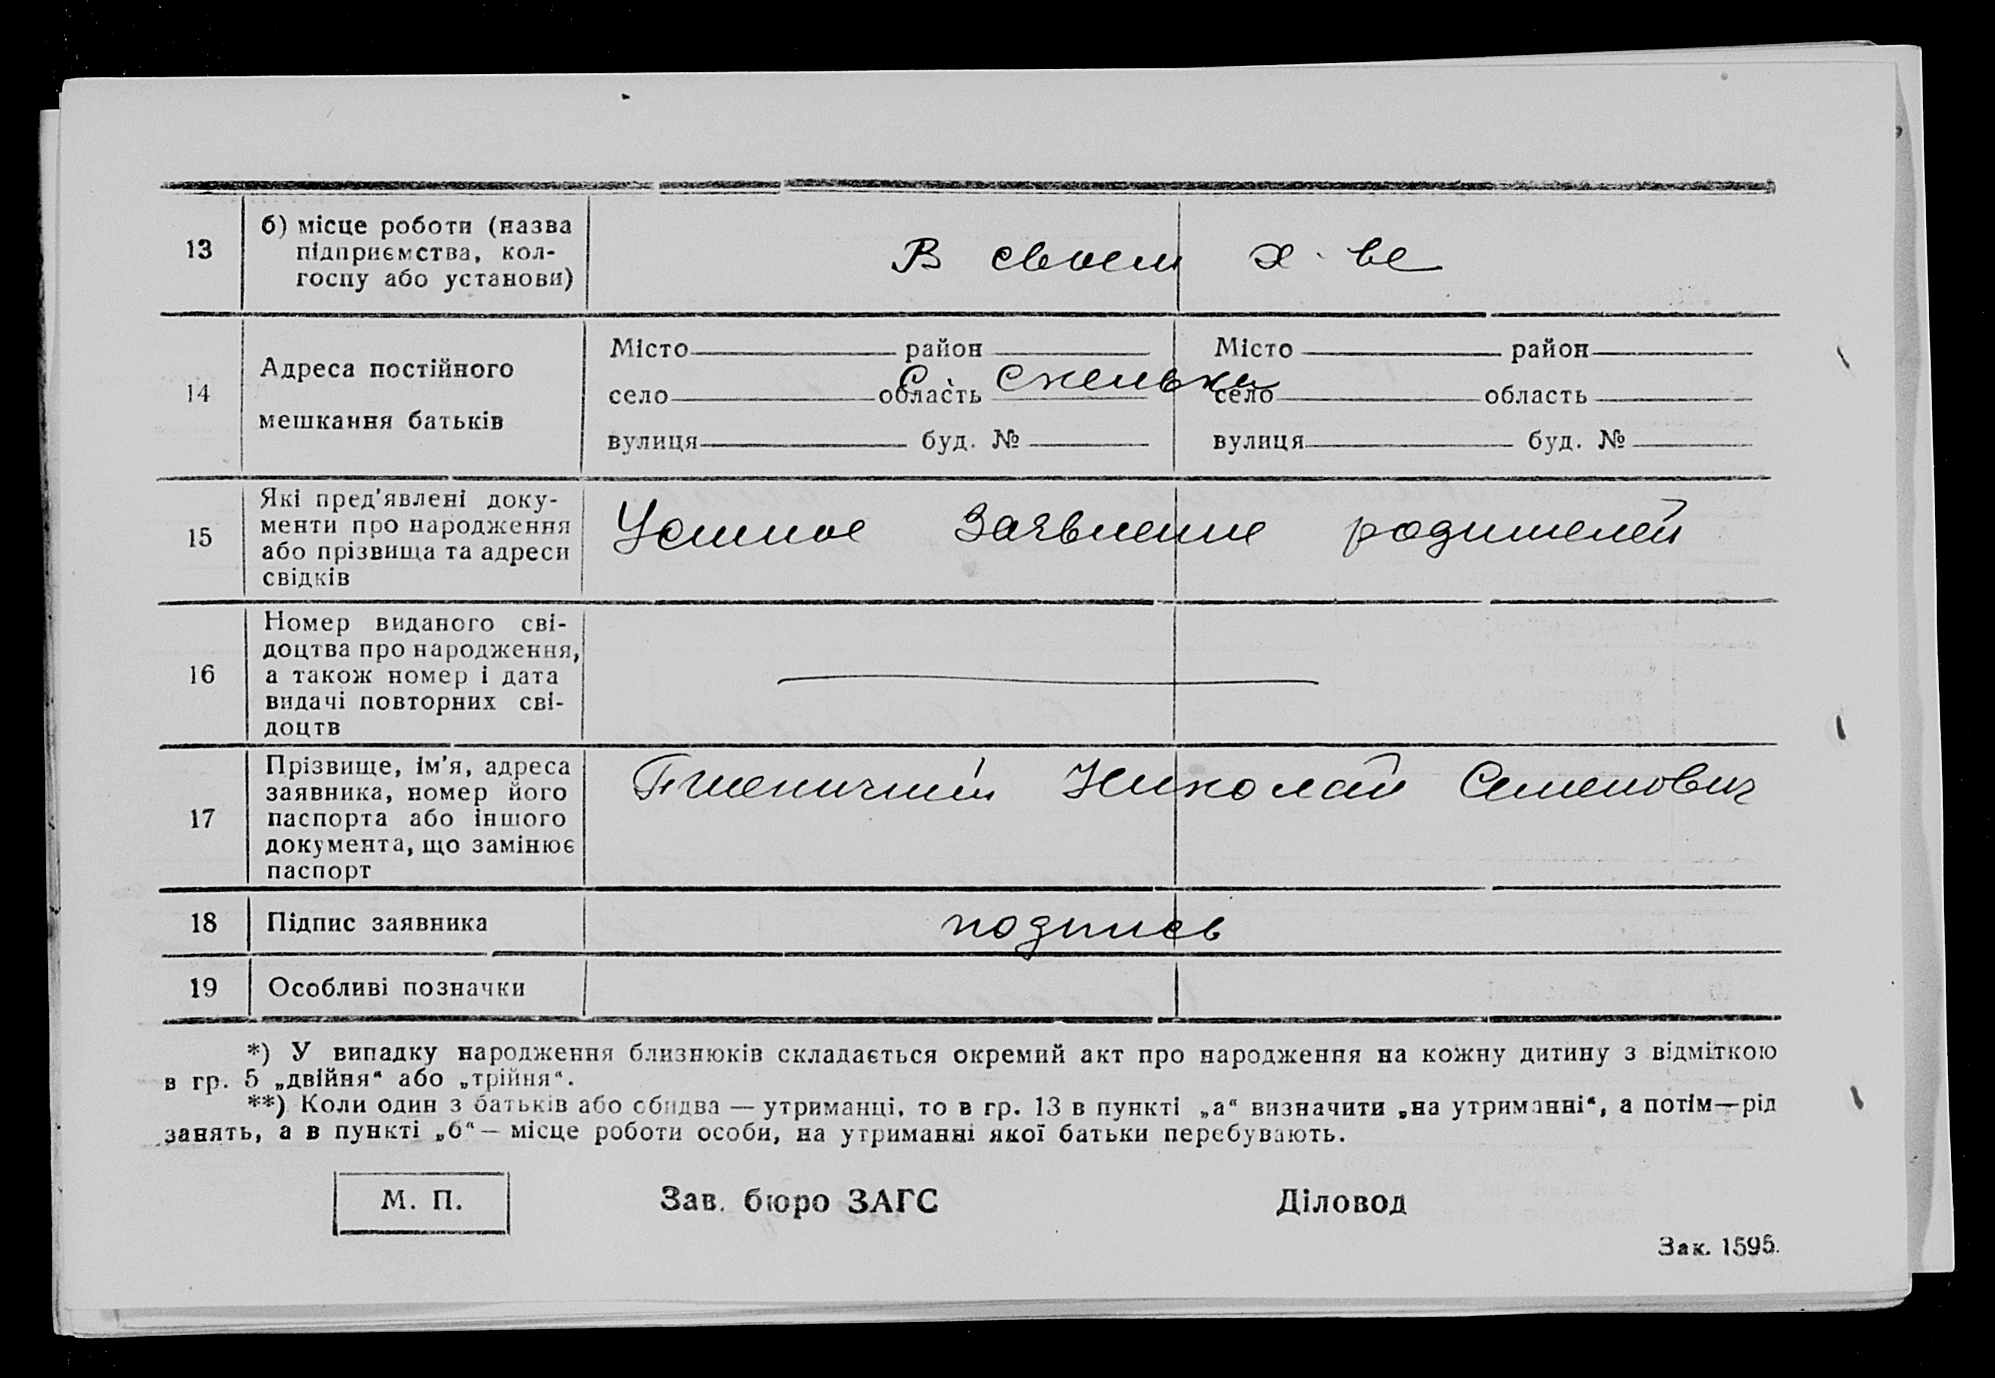 13
б) місце роботи (назва
підприємства, кол-
госпу або установи)
В своем х-ве
14
Адреса постійного
мешкання батьків
Місто район
село область
вулиця буд. №
С. Скельки
Місто район
село область
вулиця буд. №
15
Які пред'явлені доку-
менти про народження
або прізвища та адреси
свідків
Устное Заявление родителей
16
Номер виданого сві-
доцтва про народження,
а також номер і дата
видачі повторних сві-
доцтв
17
Прізвище, ім'я, адреса
заявника, номер його
паспорта або іншого
документа, що замінює
паспорт
Пшеничный Николай Семенович
18
Підпис заявника
подпись
19
Особливі позначки
*) У випадку народження близнюків складається окремий акт про народження на кожну дитину з відміткою
в гр. 5 „двійня“ або „трійня“.
**) Коли один з батьків або обидва — утриманці, то в гр. 13 в пункті „а“ визначити „на утриманні“, а потім—рід
занять, а в пункті „б“ — місце роботи особи, на утриманні якої батьки перебувають.
М. П.
Зав. бюро ЗАГС
Діловод
Зак. 1595.